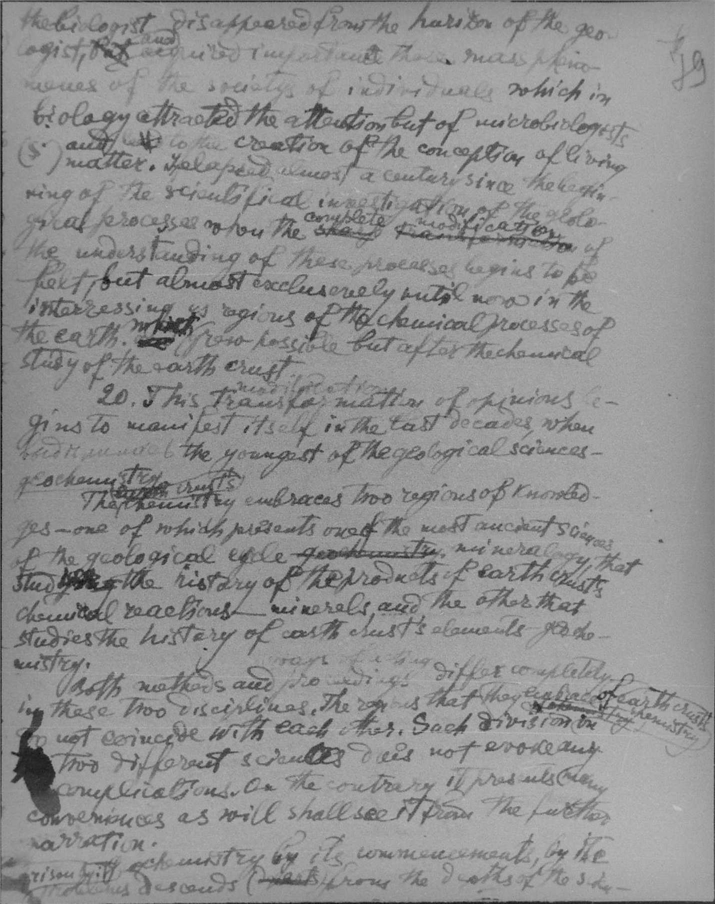 19
the biologist disappeared from the horizon of the geo-
logist, but and acquired importance those mass pheno-
menes of the societys of individuals which in
biology attracted the attention but of microbiologists
(S.) and led to the creation of the conception of living
matter. Ielapsed almost a century since the begin-
ning of the scientifical investigation of the geolo-
gical processes when the complete modification of
the understanding of these processes begins to be
felt, but almost exclusevely until now in the
interressing us regions of the chemical processes of
the earth. grew possible but after the chemical
study of the earth crust.
modification
20. This transformation of opinions be-
gins to manifest itself in the last decades, when
the youngest of the geological sciences -
geochemistry
earth crusts
The chemistry embraces two regions of knowled-
ges - one of which presents one of the most ancient sciences
of the geological cycle geochemistry, mineralogy, that
study the history of the products of earth crusts
chemical reactions - minerals, and the other that
studies the history of earth crust's elements geoche-
mistry.
ways of
Both methods and proceedings differ completely
in these two disciplines. The regions that they embrace of earth crusts
chemistry
do not coincide with each other. Such division in
two different sciences does not evoke any
complications. On the contrary it presents many
conveniences as will shall see it from the further
narration.
chemistry by its commencements, by the
arison by it
problems descends from the depths of the